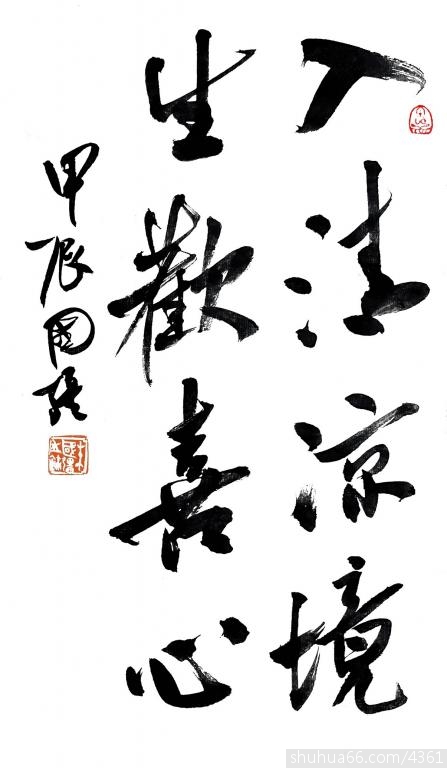 入清凉境
生歡喜心
甲辰國强
shuhua66.com/4361